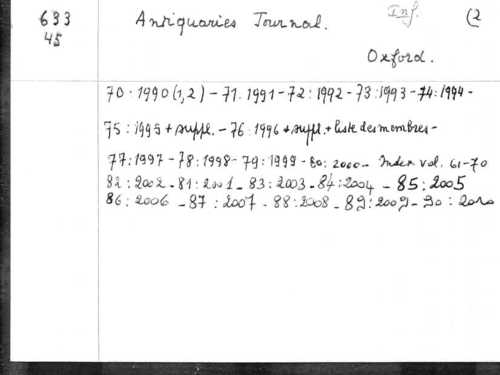 633
45
Antiquaries Journal.
Inf.
(2
Oxford.
70 · 1990 (1,2) - 71 : 1991 - 72 : 1992 - 73 : 1993 - 74 : 1994 -
75 : 1995 + suppl. - 76 1996 + suppl. + liste des membres -
77 : 1997 - 78 : 1998 - 79 : 1999 - 80 : 2000 - Index vol. 61-70
82 : 2002 - 81 : 2001 - 83 : 2003 - 84 : 2004 - 85 : 2005
86 : 2006 - 87 : 2007 - 88 : 2008 - 89 : 2009 - 90 : 2010